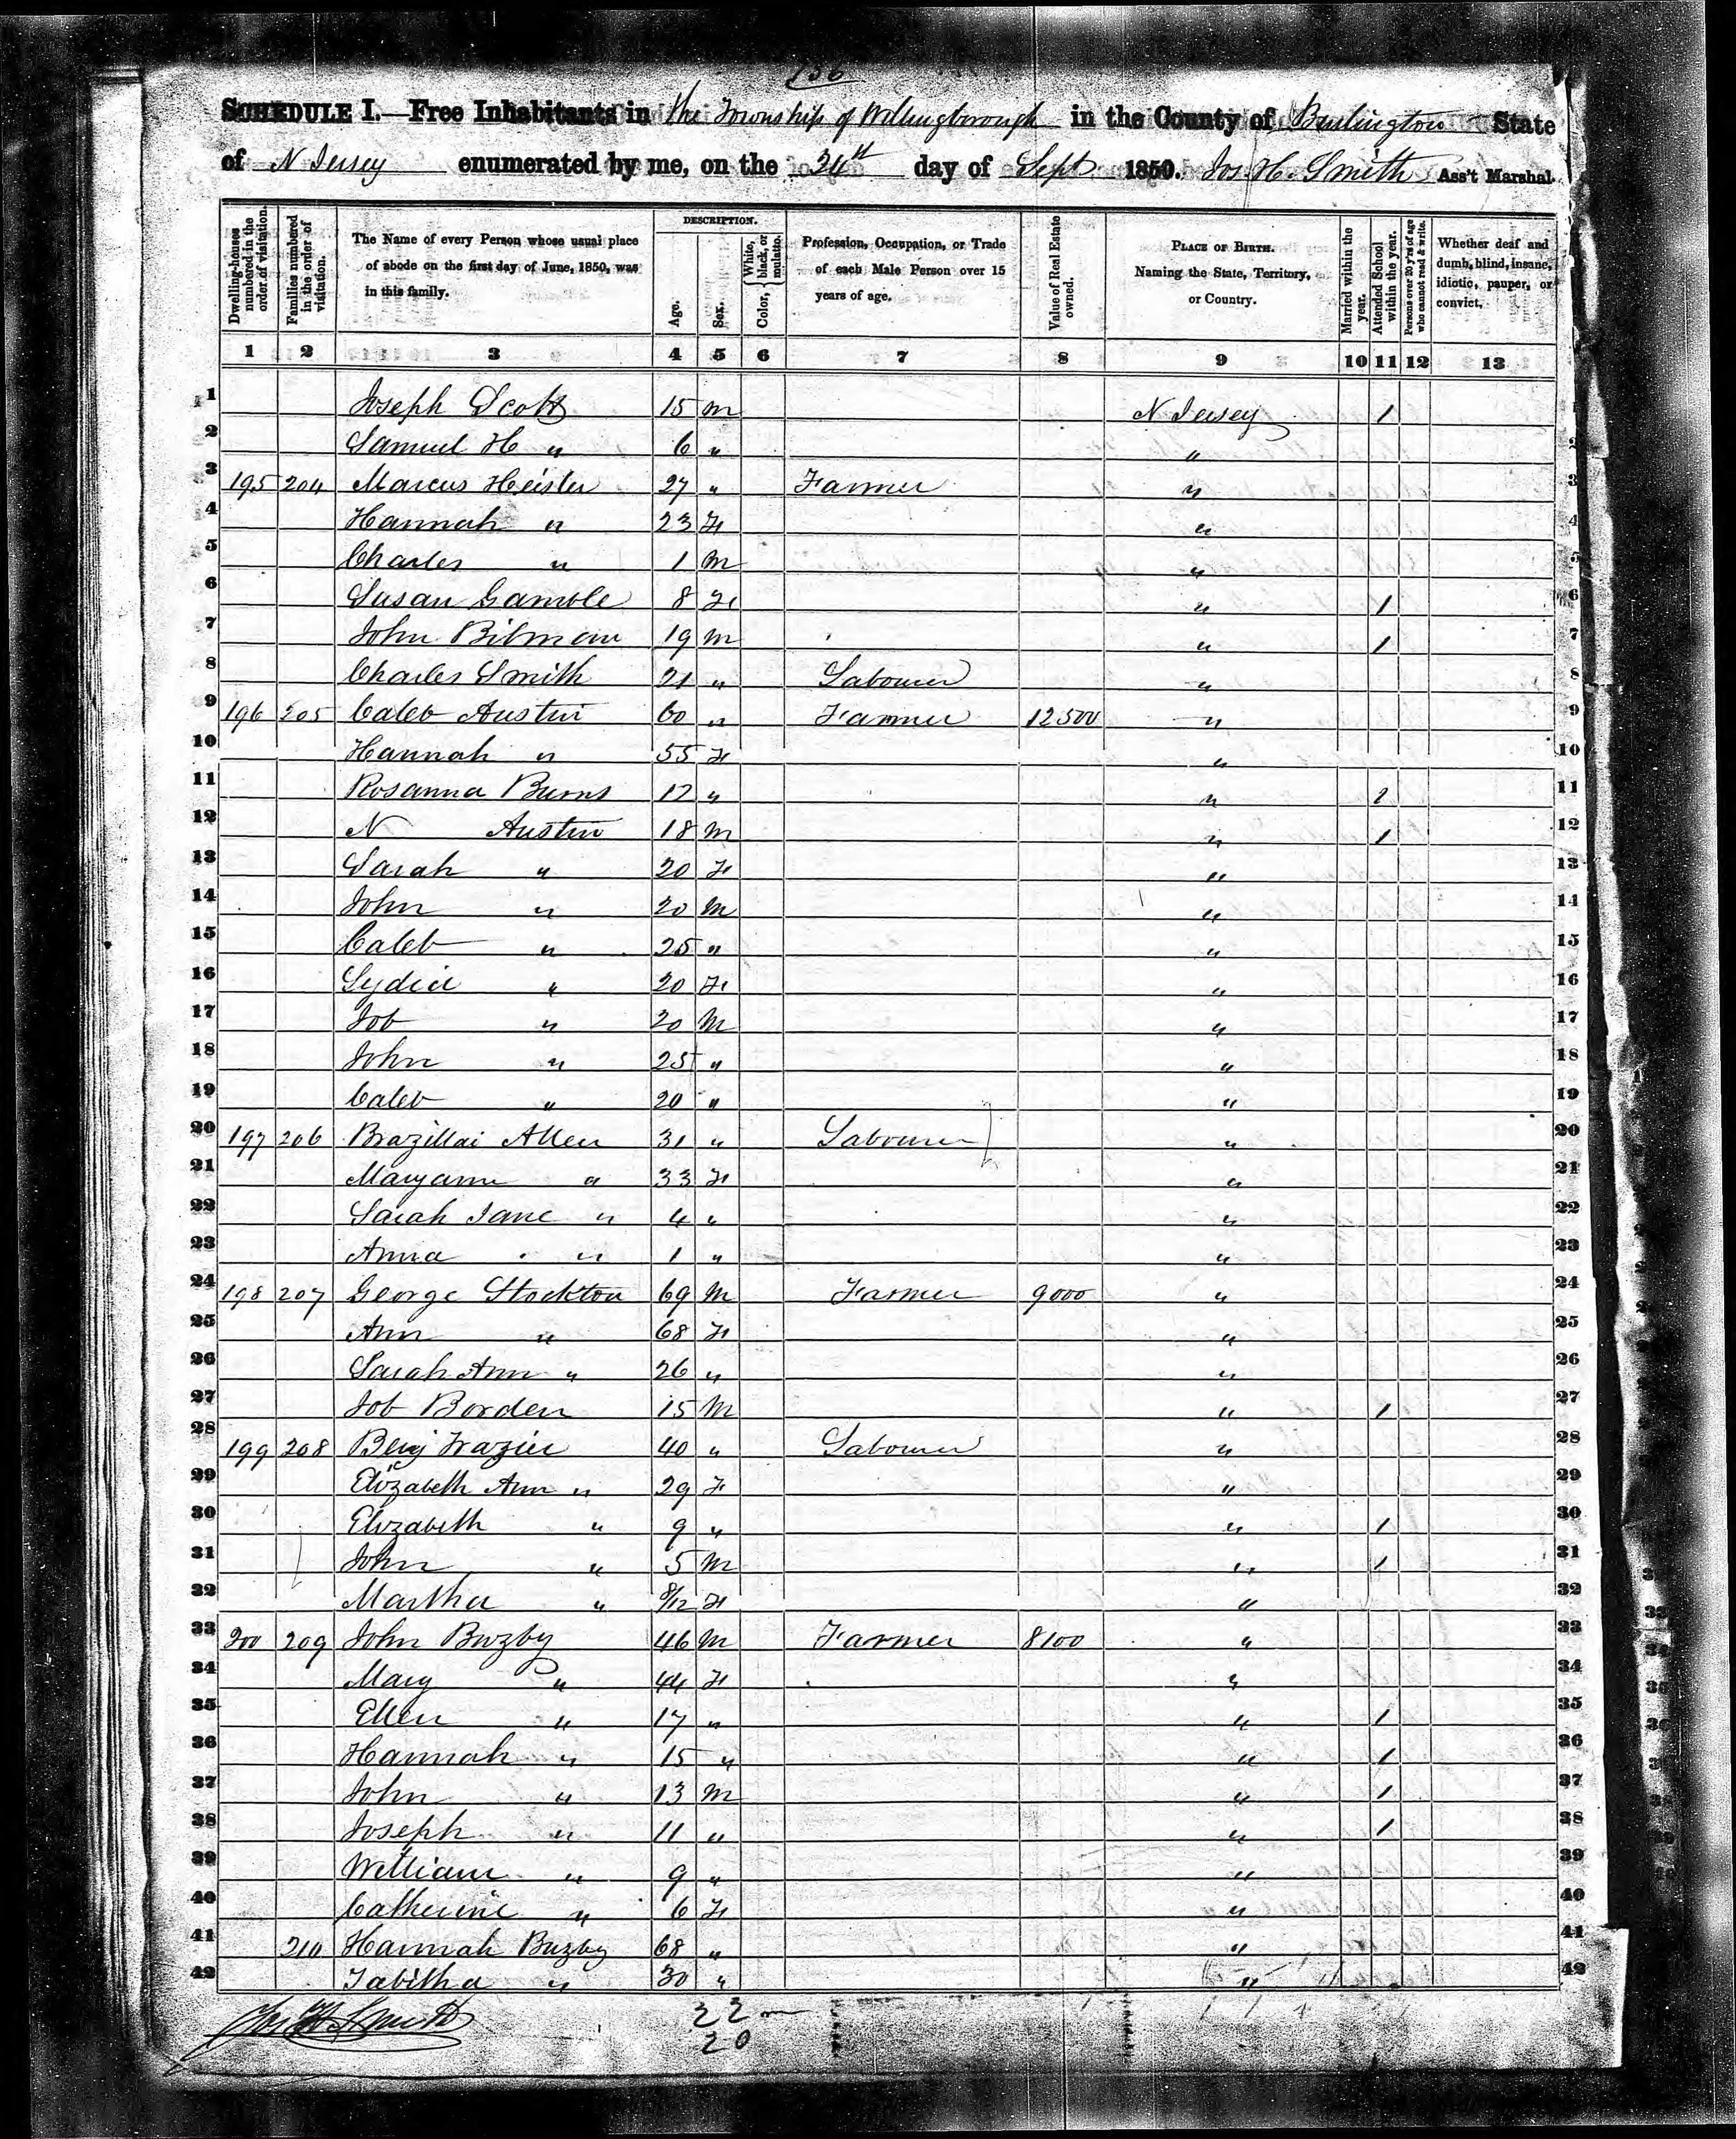 156
SCHEDULE I.—Free Inhabitants in the Township of Willingborough in the County of Burlington State
of N Jersey enumerated by me, on the 24th day of Sept 1850. Jos. H. Smith Ass't Marshal.
Dwelling-houses numbered in the order of visitation.
Families numbered in the order of visitation.
The Name of every Person whose usual place of abode on the first day of June, 1850, was in this family.
DESCRIPTION.
Age.
Sex.
Color, { White, black, or mulatto.
Profession, Occupation, or Trade of each Male Person over 15 years of age.
Value of Real Estate owned.
PLACE OF BIRTH. Naming the State, Territory, or Country.
Married within the year.
Attended School within the year.
Persons over 20 y'rs of age who cannot read & write.
Whether deaf and dumb, blind, insane, idiotic, pauper, or convict.
1 2 3 4 5 6 7 8 9 10 11 12 13
1 Joseph Scott 15 M N Jersey 1 1
2 Samuel H " 6 " " 2
3 195 204 Marcus Heisler 27 " Farmer " 3
4 Hannah " 23 F " 4
5 Charles " 1 M " 5
6 Susan Gamble 8 F " 1 6
7 John Bilman 19 M " 1 7
8 Charles Smith 21 " Labourer " 8
9 196 205 Caleb Austin 60 " Farmer 12500 " 9
10 Hannah " 55 F " 10
11 Rosanna Burns 12 " " 1 11
12 N Austin 18 M " 1 12
13 Sarah " 20 F " 13
14 John " 20 M " 14
15 Caleb " 25 " " 15
16 Lydia " 20 F " 16
17 Job " 20 M " 17
18 John " 25 " " 18
19 Caleb " 20 " " 19
20 197 206 Brazillai Allen 31 " Labourer " 20
21 Maryann " 33 F " 21
22 Sarah Jane " 4 " " 22
23 Anna " 1 " " 23
24 198 207 George Stockton 69 M Farmer 9000 " 24
25 Ann " 68 F " 25
26 Sarah Ann " 26 " " 26
27 Job Borden 15 M " 1 27
28 199 208 Benj Frazier 40 " Labourer " 28
29 Elizabeth Ann " 29 F " 29
30 Elizabeth " 9 " " 1 30
31 John " 5 M " 1 31
32 Martha " 8/12 F " 32
33 200 209 John Buzby 46 M Farmer 8100 " 33
34 Mary " 44 F " 34
35 Ellen " 17 " " 1 35
36 Hannah " 15 " " 1 36
37 John " 13 M " 1 37
38 Joseph " 11 " " 1 38
39 William " 9 " " 39
40 Catherine " 6 F " 40
41 210 Hannah Buzby 68 " " 41
42 Tabitha " 30 " " 42
Jos H Smith 22
20